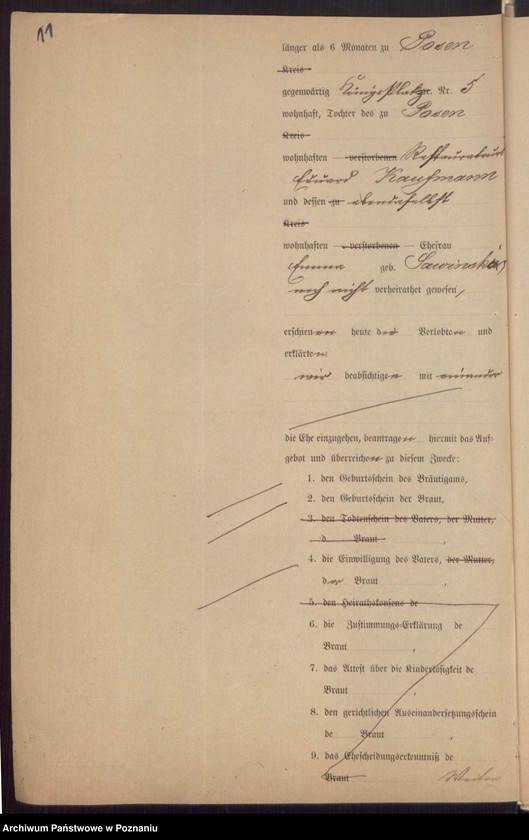 11
länger als 6 Monaten zu Posen
Kreis
gegenwärtig Königsplatz Nr. 5
wohnhaft, Tochter des zu Posen
Kreis
wohnhaften verstorbenen Restaurateurs
Eduard Kaufmann
und dessen zu ebendaselbst
Kreis
wohnhaften verstorbenen Ehefrau
Emma geb. Sawinski
noch nicht verheirathet gewesen,
erschienen heute die Verlobten und
erklärten:
wir beabsichtigen mit einander
die Ehe einzugehen, beantragen hiermit das Auf-
gebot und überreichen zu diesem Zwecke:
1. den Geburtsschein des Bräutigams,
2. den Geburtsschein der Braut,
3. den Todtenschein des Vaters, der Mutter,
d Braut ,
4. die Einwilligung des Vaters, der Mutter,
der Braut ,
5. den Heirathskonsens de
6. die Zustimmungs-Erklärung de
Braut ,
7. das Attest über die Kinderlosigkeit de
Braut ,
8. den gerichtlichen Auseinandersetzungsschein
de Braut ,
9. das Ehescheidungserkenntniß de
Braut
Archiwum Państwowe w Poznaniu